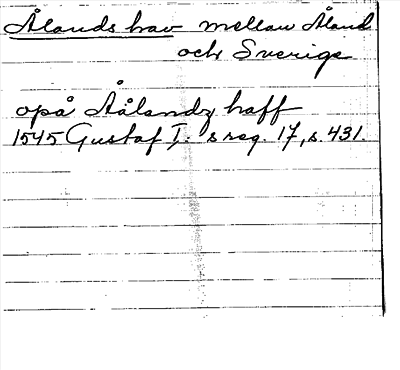 Ålands hav mellan Åland
och Sverige
opå Åålandz haff
1545 Gustaf I:s reg. 17, s. 431.